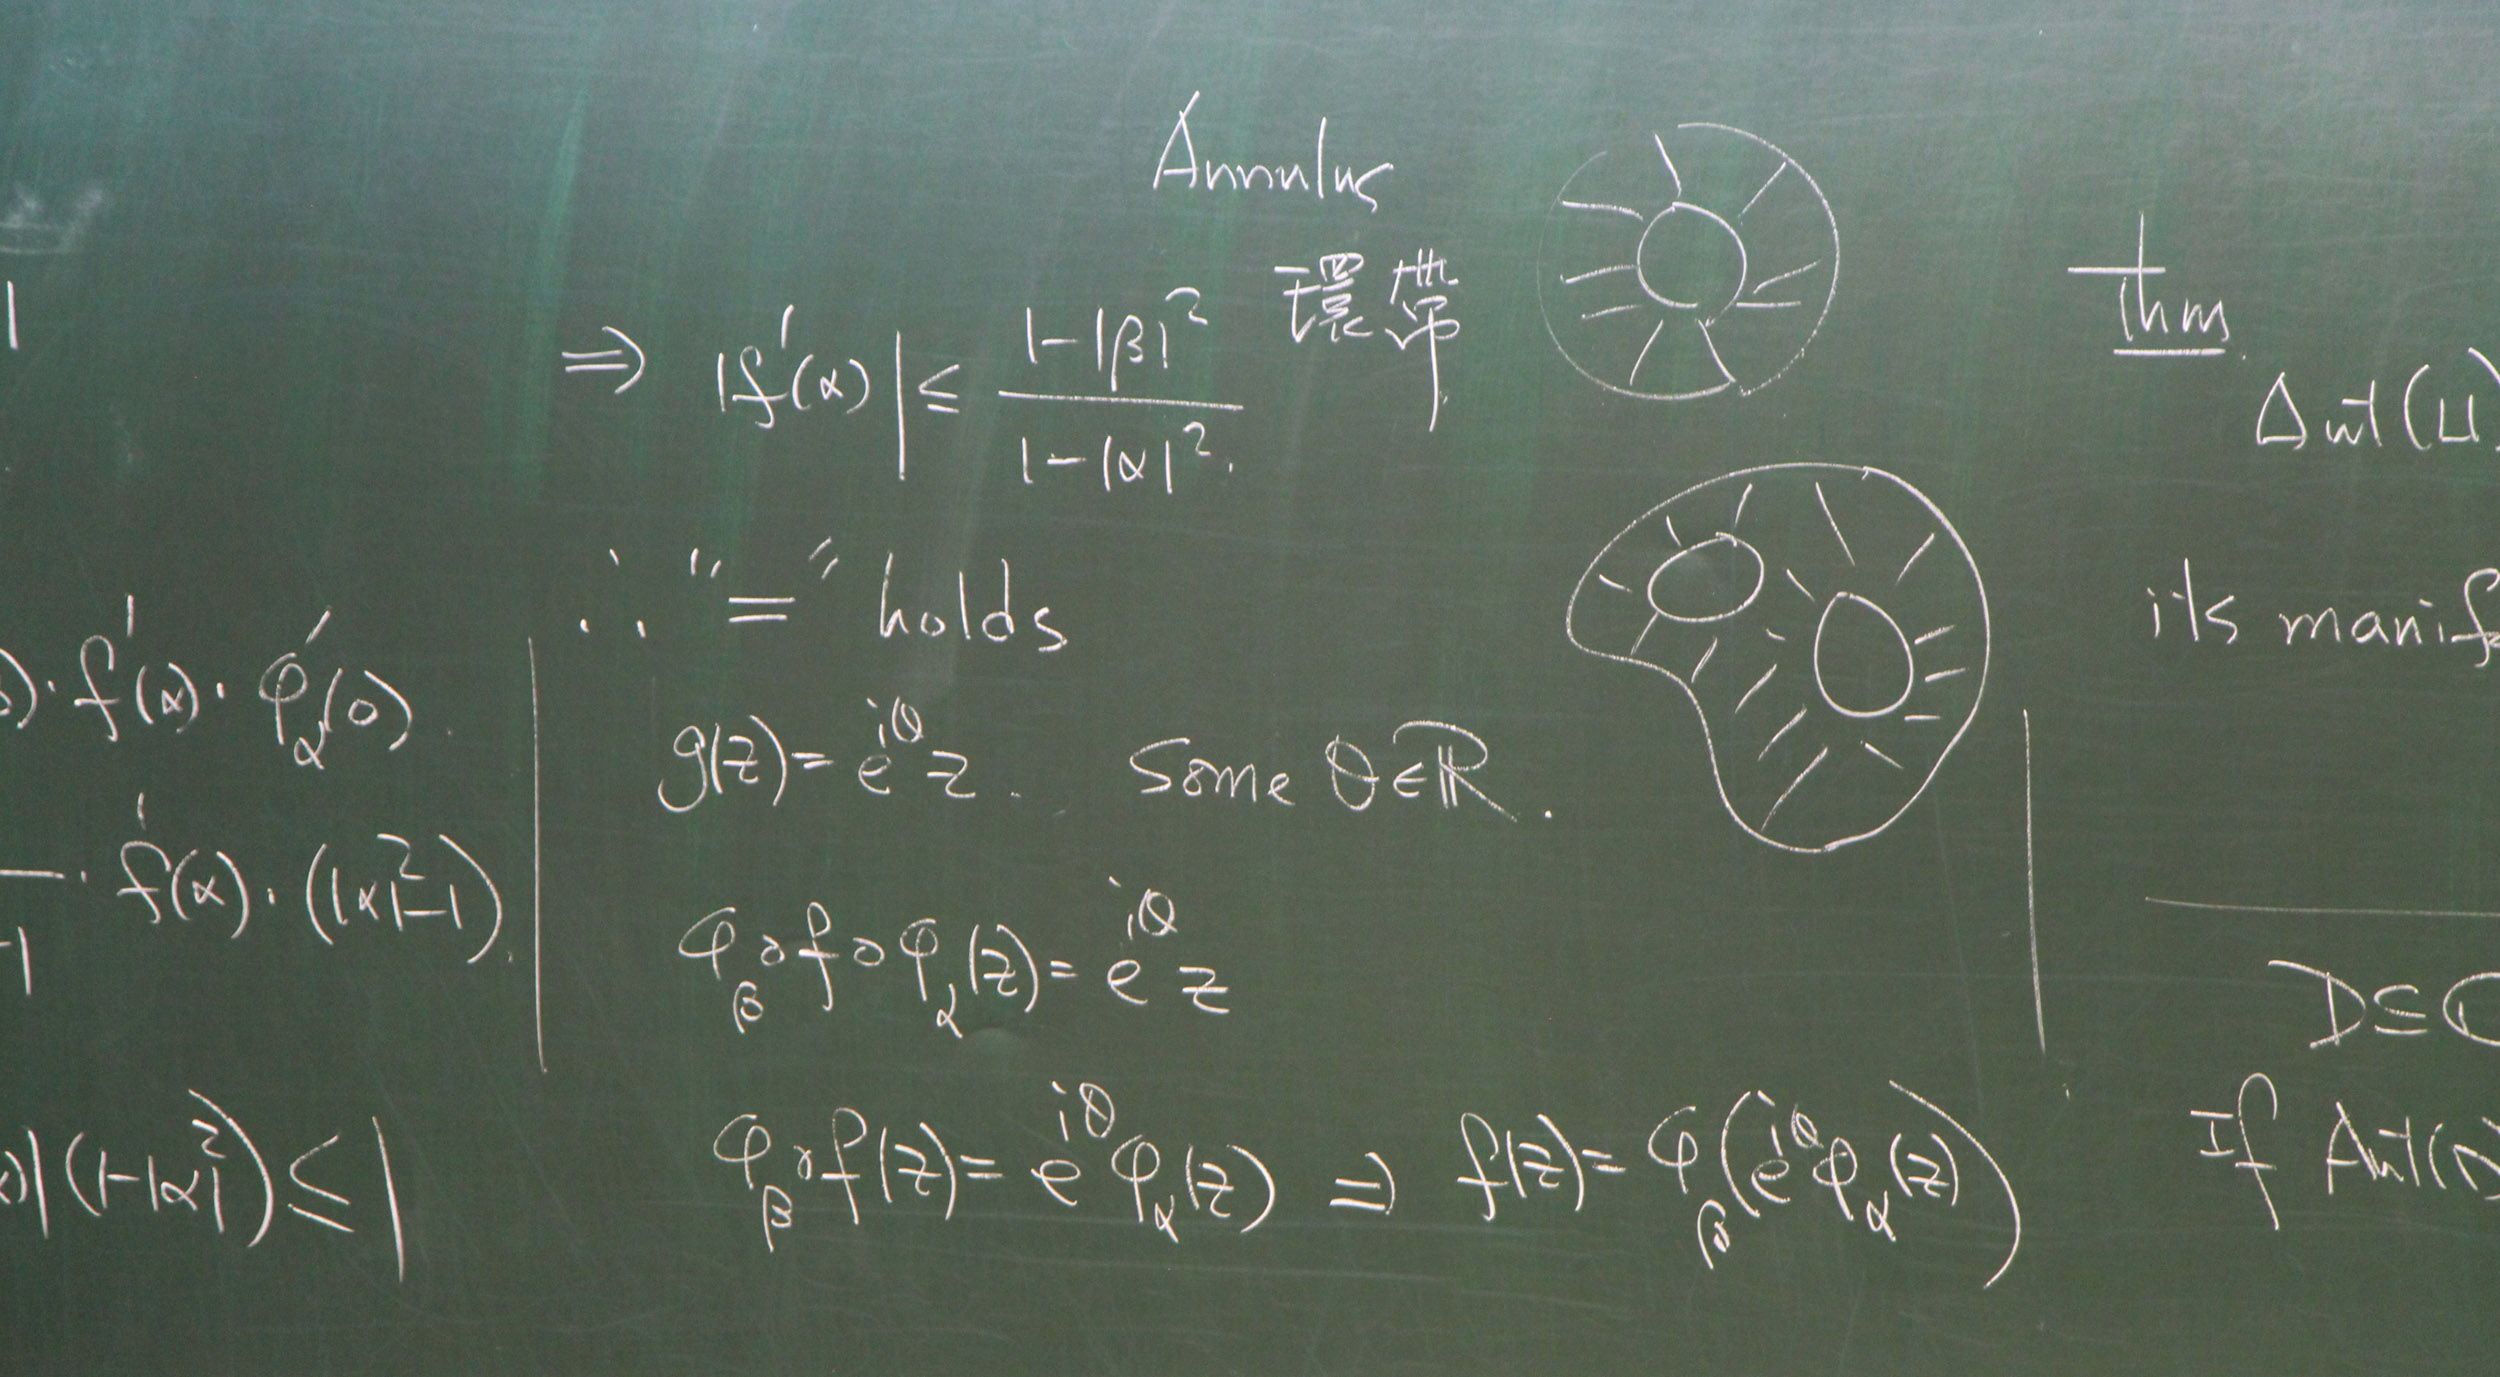 1
· f'(α) · φ'_α(0).
· f'(α) · (|α|²-1).
-1
|(1-|α|²) ≤ 1
Annulus
環帶
⇒ |f'(α)| ≤ \frac{1-|β|²}{1-|α|²}.
∵ "=" holds
g(z) = e^{iθ}z. Some θ∈ℝ.
φ_β∘f∘φ_α(z) = e^{iθ}z
φ_β∘f(z) = e^{iθ}φ_α(z) ⇒ f(z) = φ_β(e^{iθ}φ_α(z))
Thm
Aut(
its manif
D⊆
If Aut(D